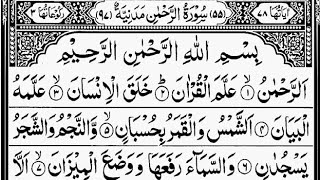 اٰيَاتُهَا ٧٨ (٥٥) سُوْرَةُ الرَّحْمٰنِ مَدَنِيَّةٌ (٩٧) رُكُوْعَاتُهَا ٣
بِسْمِ اللّٰهِ الرَّحْمٰنِ الرَّحِيْمِ
اَلرَّحْمٰنُ ۙ﴿١﴾ عَلَّمَ الْقُرْاٰنَ ؕ﴿٢﴾ خَلَقَ الْاِنْسَانَ ۙ﴿٣﴾ عَلَّمَهُ
الْبَيَانَ ﴿٤﴾ اَلشَّمْسُ وَالْقَمَرُ بِحُسْبَانٍ ۪﴿٥﴾ وَّالنَّجْمُ وَالشَّجَرُ
يَسْجُدٰنِ ﴿٦﴾ وَالسَّمَآءَ رَفَعَهَا وَوَضَعَ الْمِيْزَانَ ۙ﴿٧﴾ اَلَّا